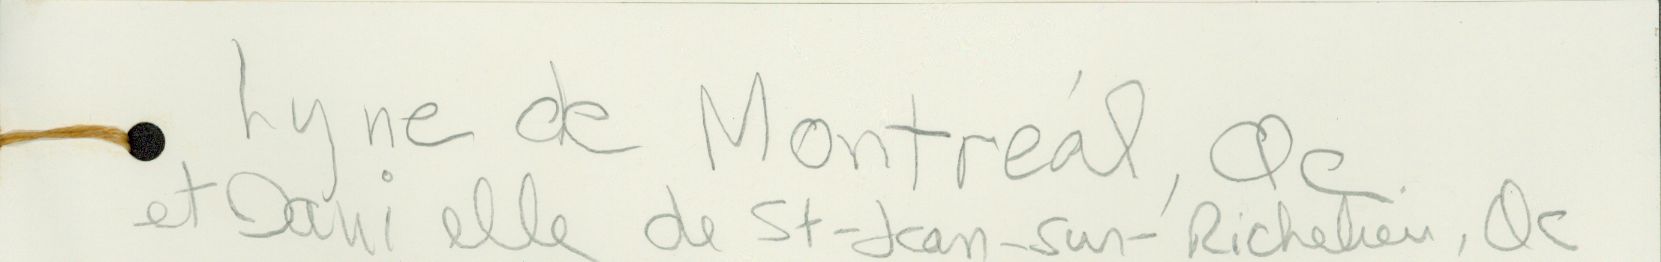 Lyne de Montréal, Qc
et Danielle de St-Jean-sur-Richelieu, Qc